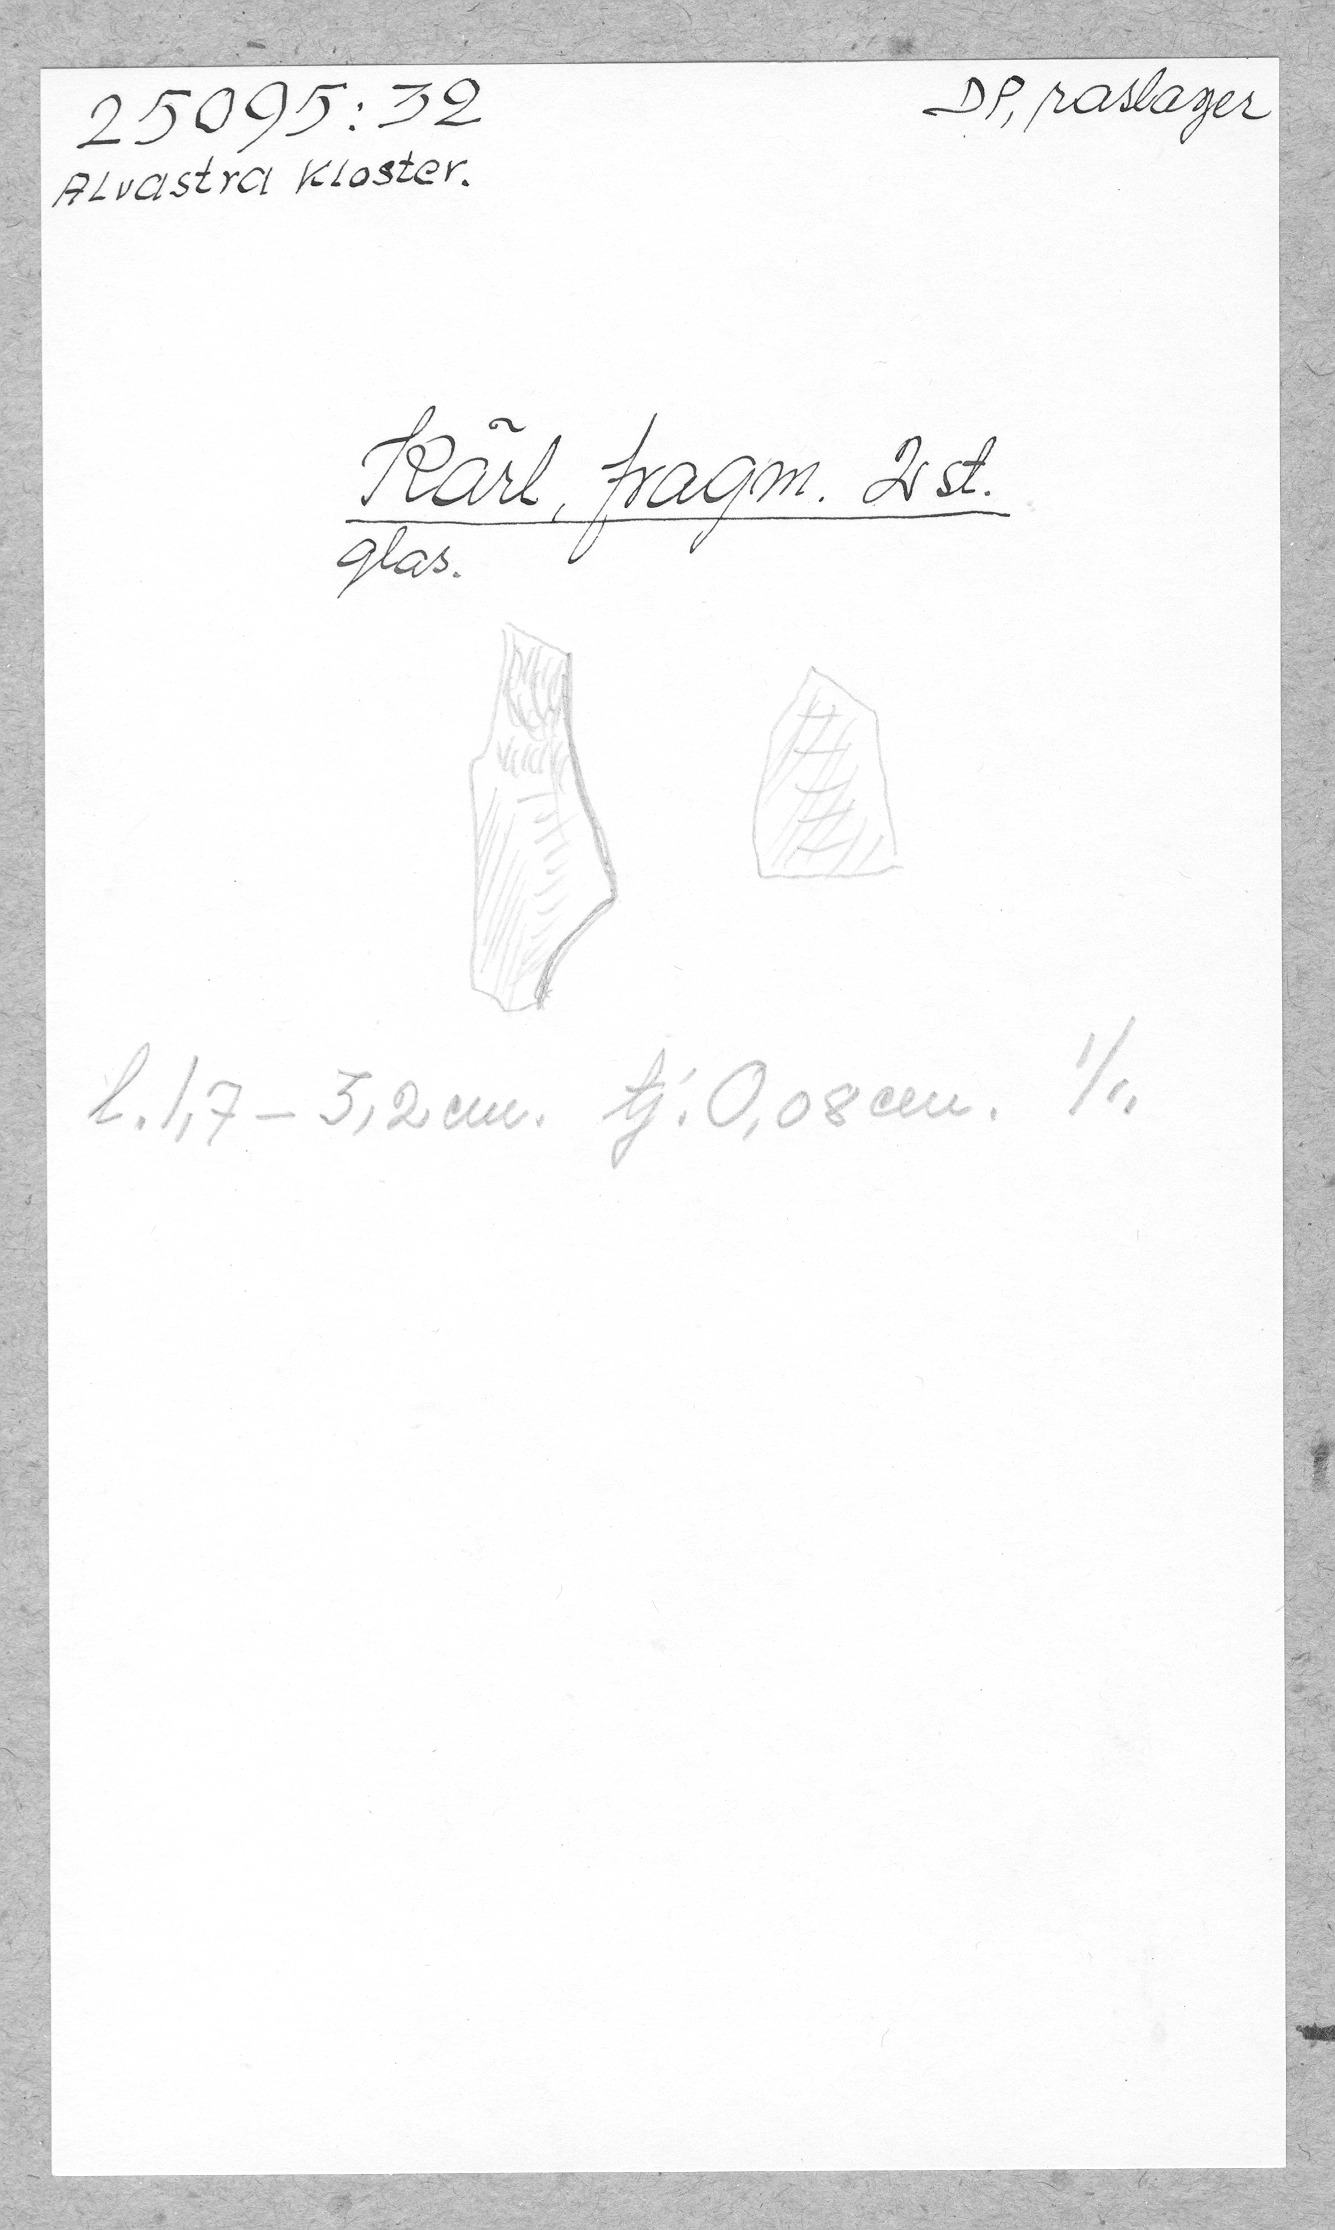 25095:32
DP, raslager
Alvastra Kloster.
Kärl, fragm. 2 st.
glas.
l. 1,7 – 3,2 cm. tj. 0,08 cm. 1/1.